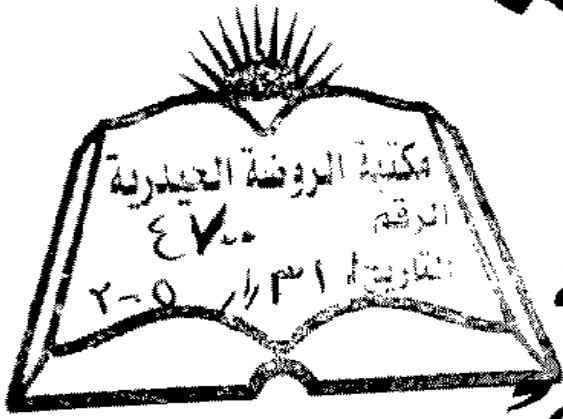 مكتبة الروضة الحيدرية
الرقم
٤٧٠٠
التاريخ